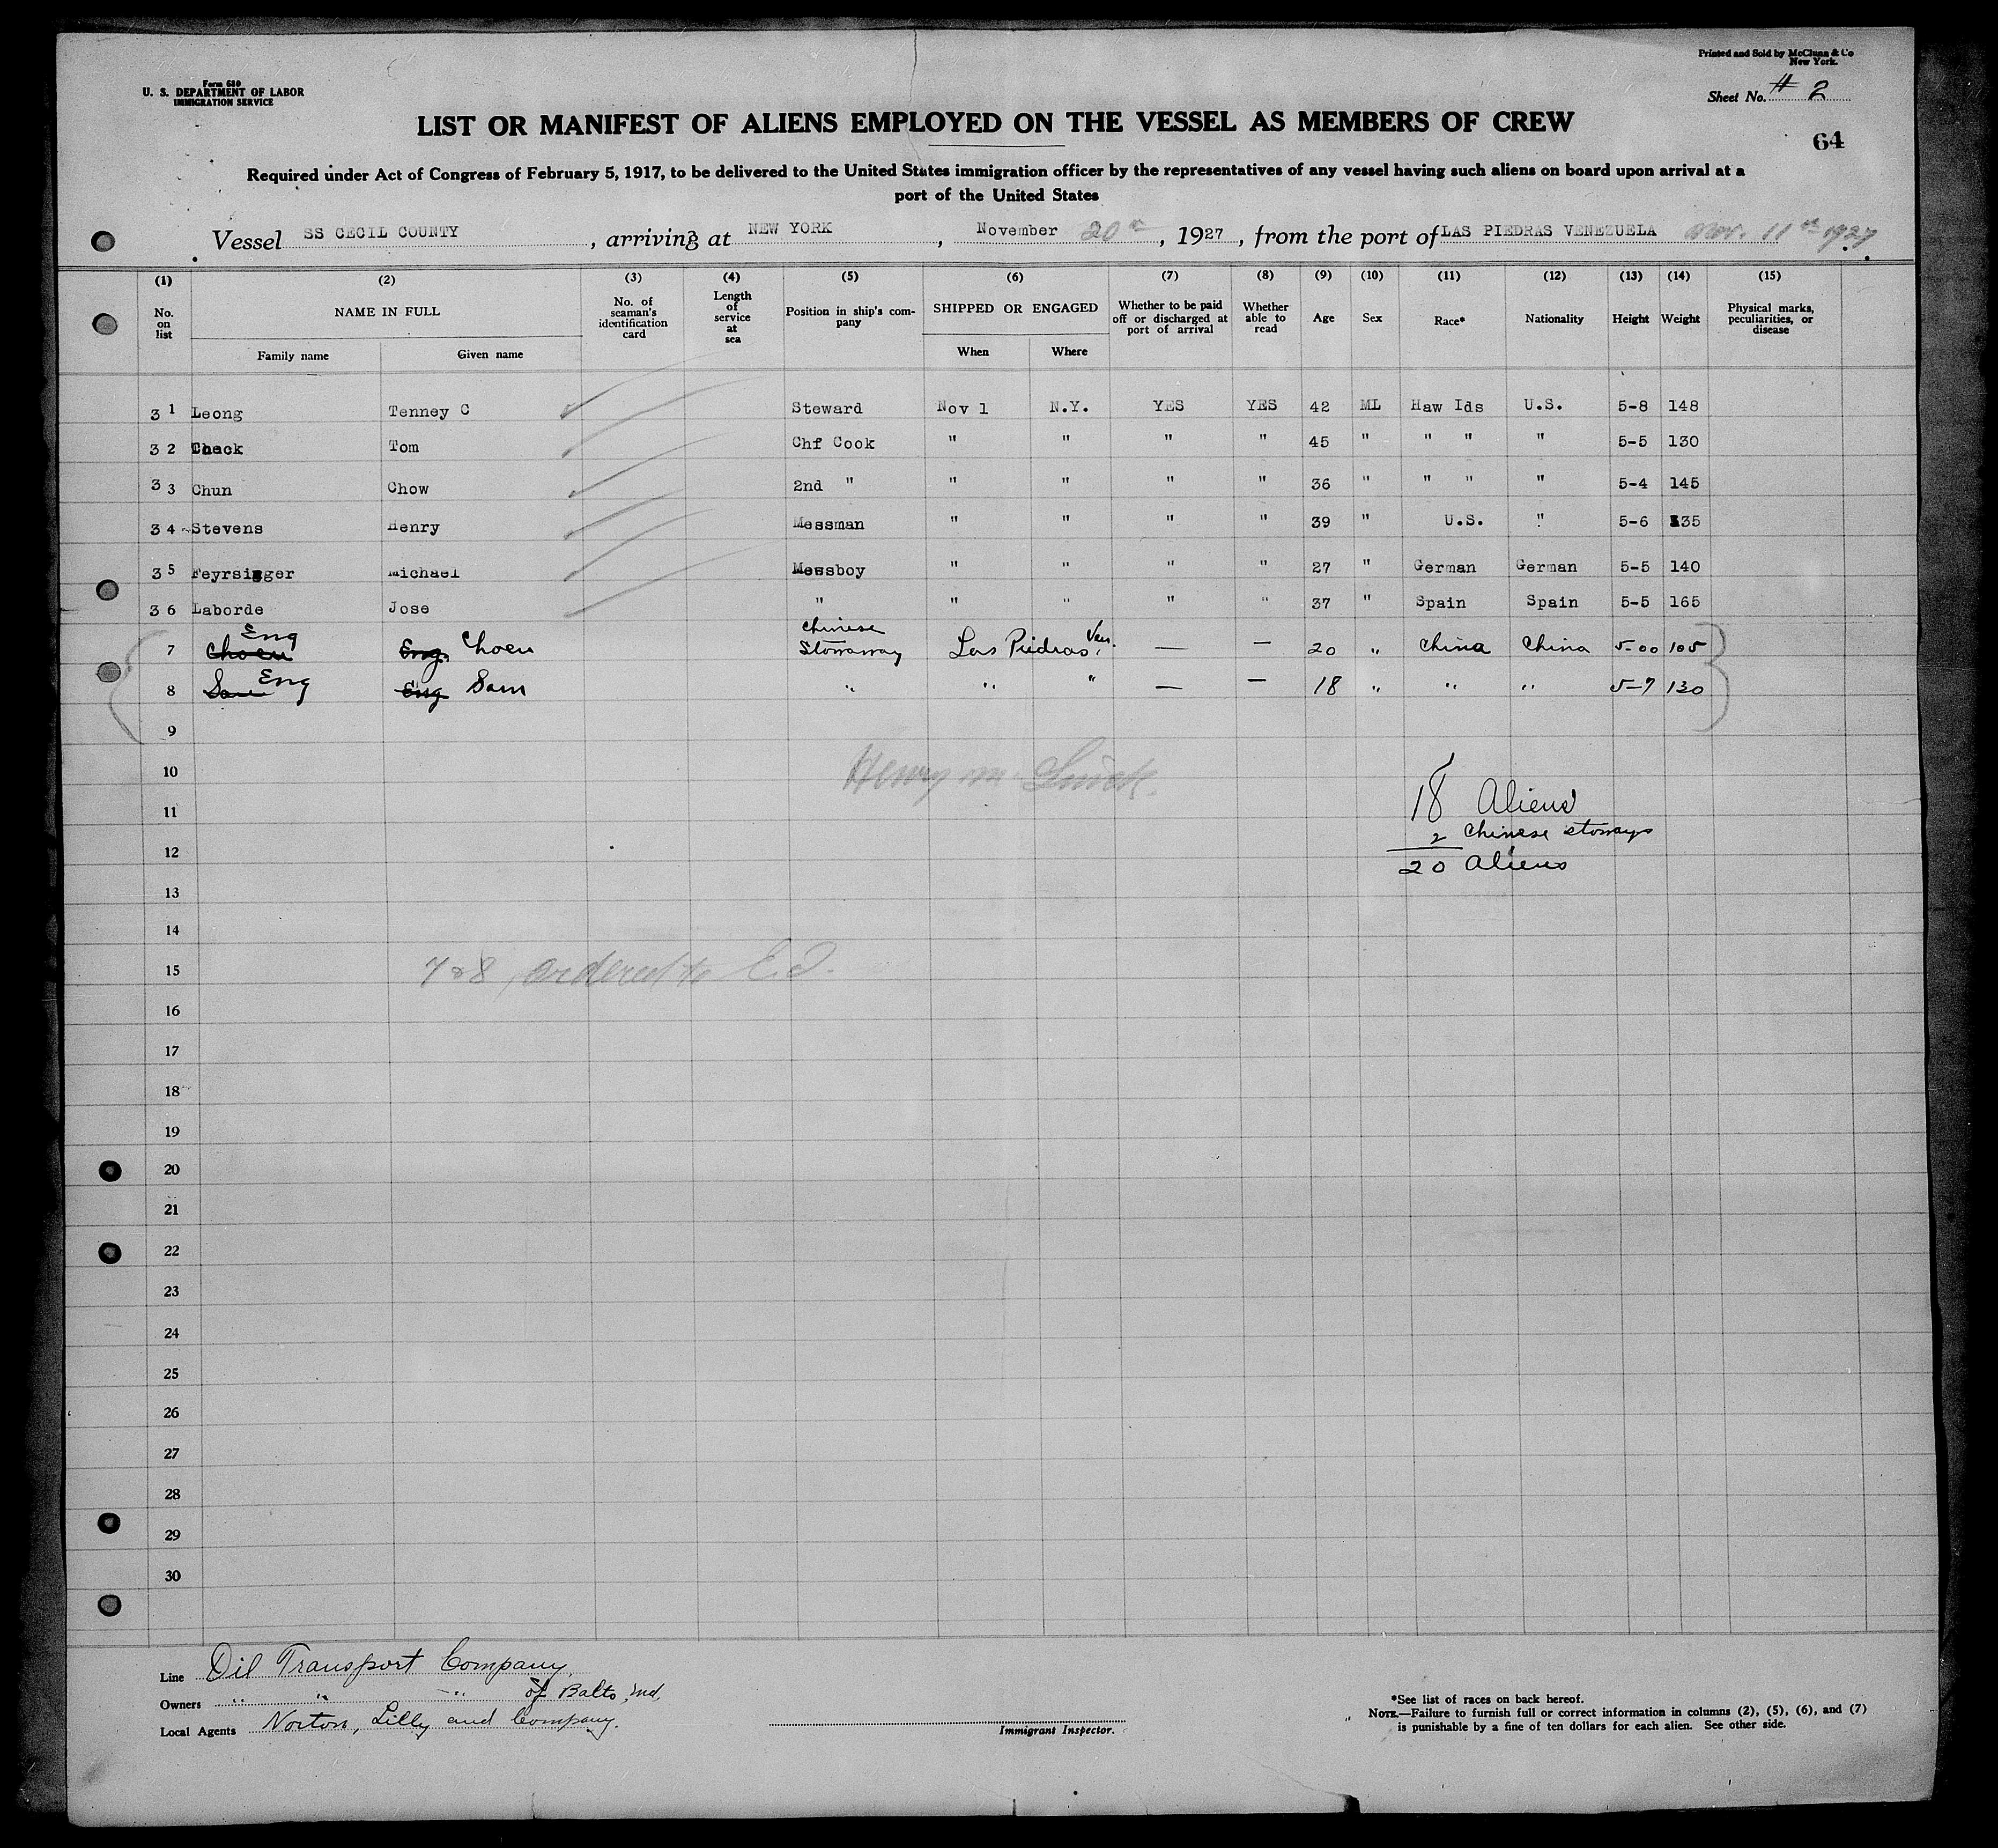 Form 680
U. S. DEPARTMENT OF LABOR
IMMIGRATION SERVICE
Printed and Sold by McClunn & Co
New York.
Sheet No. # 2
LIST OR MANIFEST OF ALIENS EMPLOYED ON THE VESSEL AS MEMBERS OF CREW
64
Required under Act of Congress of February 5, 1917, to be delivered to the United States immigration officer by the representatives of any vessel having such aliens on board upon arrival at a
port of the United States
Vessel SS CECIL COUNTY, arriving at NEW YORK, November 20th, 1927, from the port of LAS PIEDRAS VENEZUELA Nov. 11th 1927
(1) (2) (3) (4) (5) (6) (7) (8) (9) (10) (11) (12) (13) (14) (15)
No. on list NAME IN FULL Family name Given name No. of seaman's identification card Length of service at sea Position in ship's company SHIPPED OR ENGAGED When Where Whether to be paid off or discharged at port of arrival Whether able to read Age Sex Race* Nationality Height Weight Physical marks, peculiarities, or disease
3 1 Leong Tenney C Steward Nov 1 N.Y. YES YES 42 ML Haw Ids U.S. 5-8 148
3 2 Chack Tom Chf Cook " " " " 45 " " " " 5-5 130
3 3 Chun Chow 2nd " " " " " 36 " " " " 5-4 145
3 4 Stevens Henry Messman " " " " 39 " U.S. " 5-6 135
3 5 Feyrsinger Michael Messboy " " " " 27 " German German 5-5 140
3 6 Laborde Jose " " " " " 37 " Spain Spain 5-5 165
7 Choen Eng Eng Choen Chinese Stowaway Las Piedras, Ven. — — 20 " China China 5-00 105
8 Sam Eng Eng Sam " " " — — 18 " " " 5-7 130
9
10 Henry M
11 18 Aliens
2 Chinese stoways
12 20 Aliens
13
14
15 7 & 8 ordered to E.I.
16
17
18
19
20
21
22
23
24
25
26
27
28
29
30
Line Oil Transport Company
Owners " " " of Balto, Md.
Local Agents Norton, Lilly and Company.
Immigrant Inspector.
*See list of races on back hereof.
NOTE.—Failure to furnish full or correct information in columns (2), (5), (6), and (7)
is punishable by a fine of ten dollars for each alien. See other side.